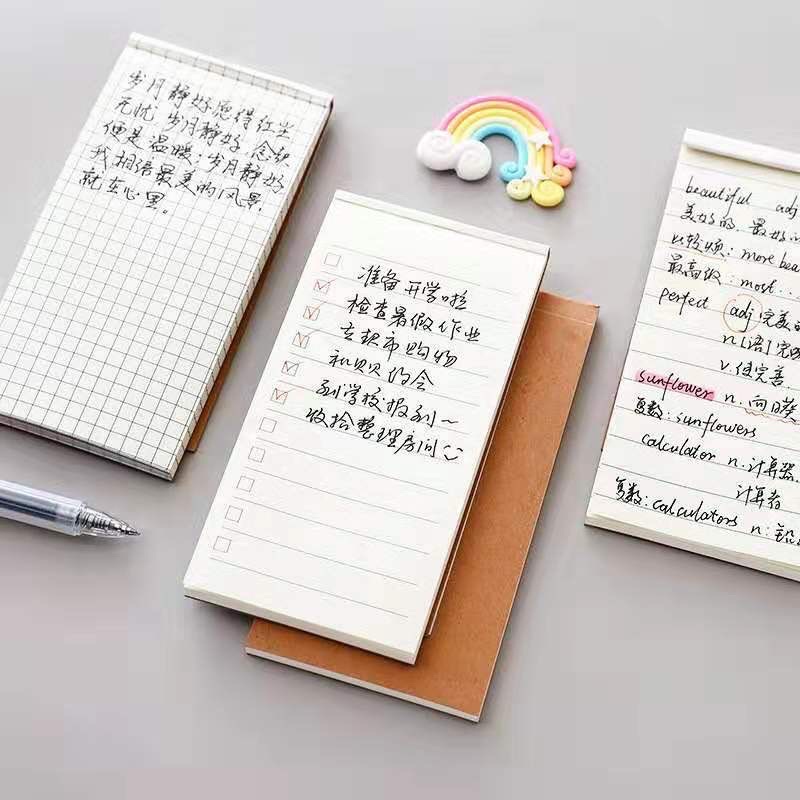 岁月静好愿得红尘
无忧岁月静好,念起
便是温暖;岁月静好
我相语最美的风景,
就在心里。
准备开学啦
检查暑假作业
去超市购物
和贝贝约会
到学校报到~
收拾整理房间
beautiful adj
美好的,最好
比较级:more beau
最高级:most...
perfect adj完美
n.[语]完
v.使完善
sunflower n.向日葵
复数:sunflowers
calculator n.计算器
计算者
复数:calculators n: